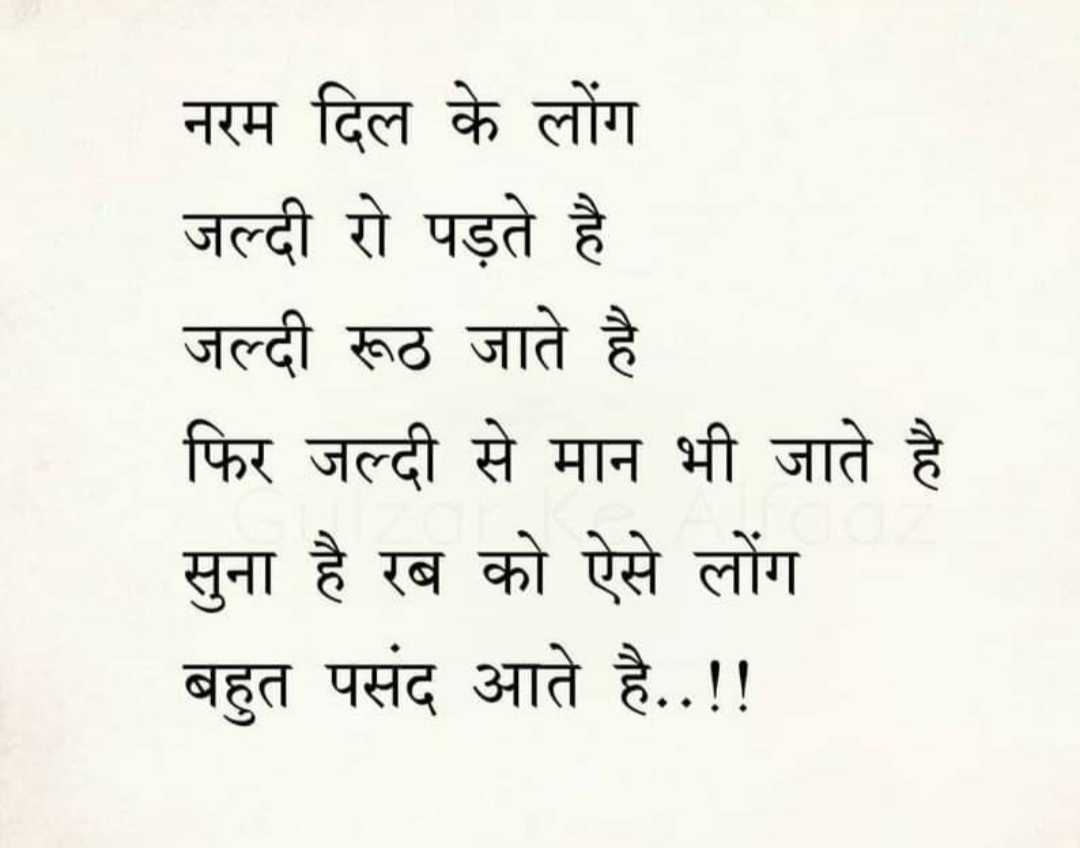 नरम दिल के लोंग
जल्दी रो पड़ते है
जल्दी रूठ जाते है
फिर जल्दी से मान भी जाते है
Gulzar Ke Alfaaz
सुना है रब को ऐसे लोंग
बहुत पसंद आते है..!!